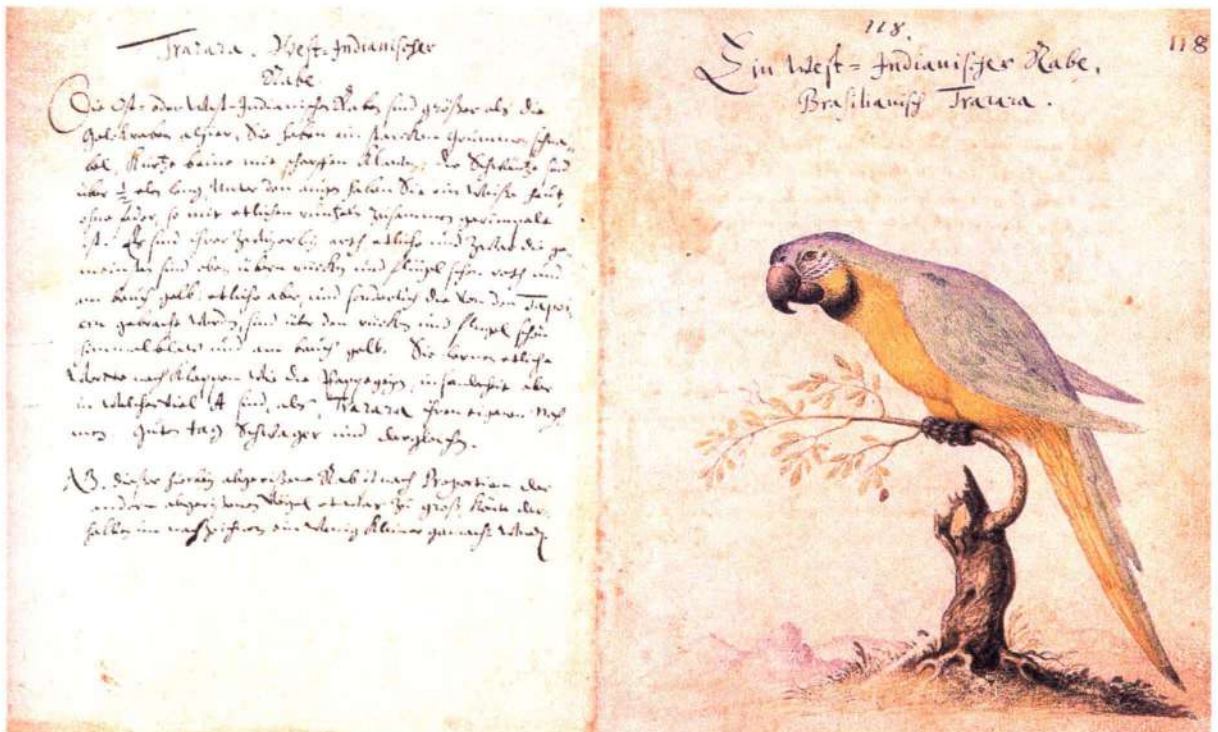 Trarara. West-Indianischer
Rabe.
Die Ost- oder West-Indianischen Raben sind größer als die
Golckraben alhier, Sie haben ein starcken Schna-
bel, Kurtze beine mit scharffen Klawen, die Schwäntze sind
über ½ eln lang, Unter den augen haben Sie ein Weiße haut
ohne feder, so mit etlichen runtzeln zusammen gerimpelt
ist. Es sind ihrer arth etliche und die ge-
meinsten sind oben übern rücken und flügel schön roth und
am bauch gelb, etliche aber, und sonderlich die von den
gebracht werden, sind über den rücken und flügel schön
himmelblaw und am bauch gelb. Sie lernen etliche
Worte nach Klappen wie die Pappegeyen, in sonderheit aber
in welcher viel A sind, als, Trarara ihren eigenen Nah-
men guten tag Schwager und dergleichen.
NB. dieser hierin abgerißene Rab ist nach Proportion der
andern abgerißenen Vögel etwas zu groß, Könte der-
halben im nachzeichnen ein wenig Kleiner gemacht werden
118.
118
Ein West-Indianischer Rabe,
Brasilianisch Trarara.